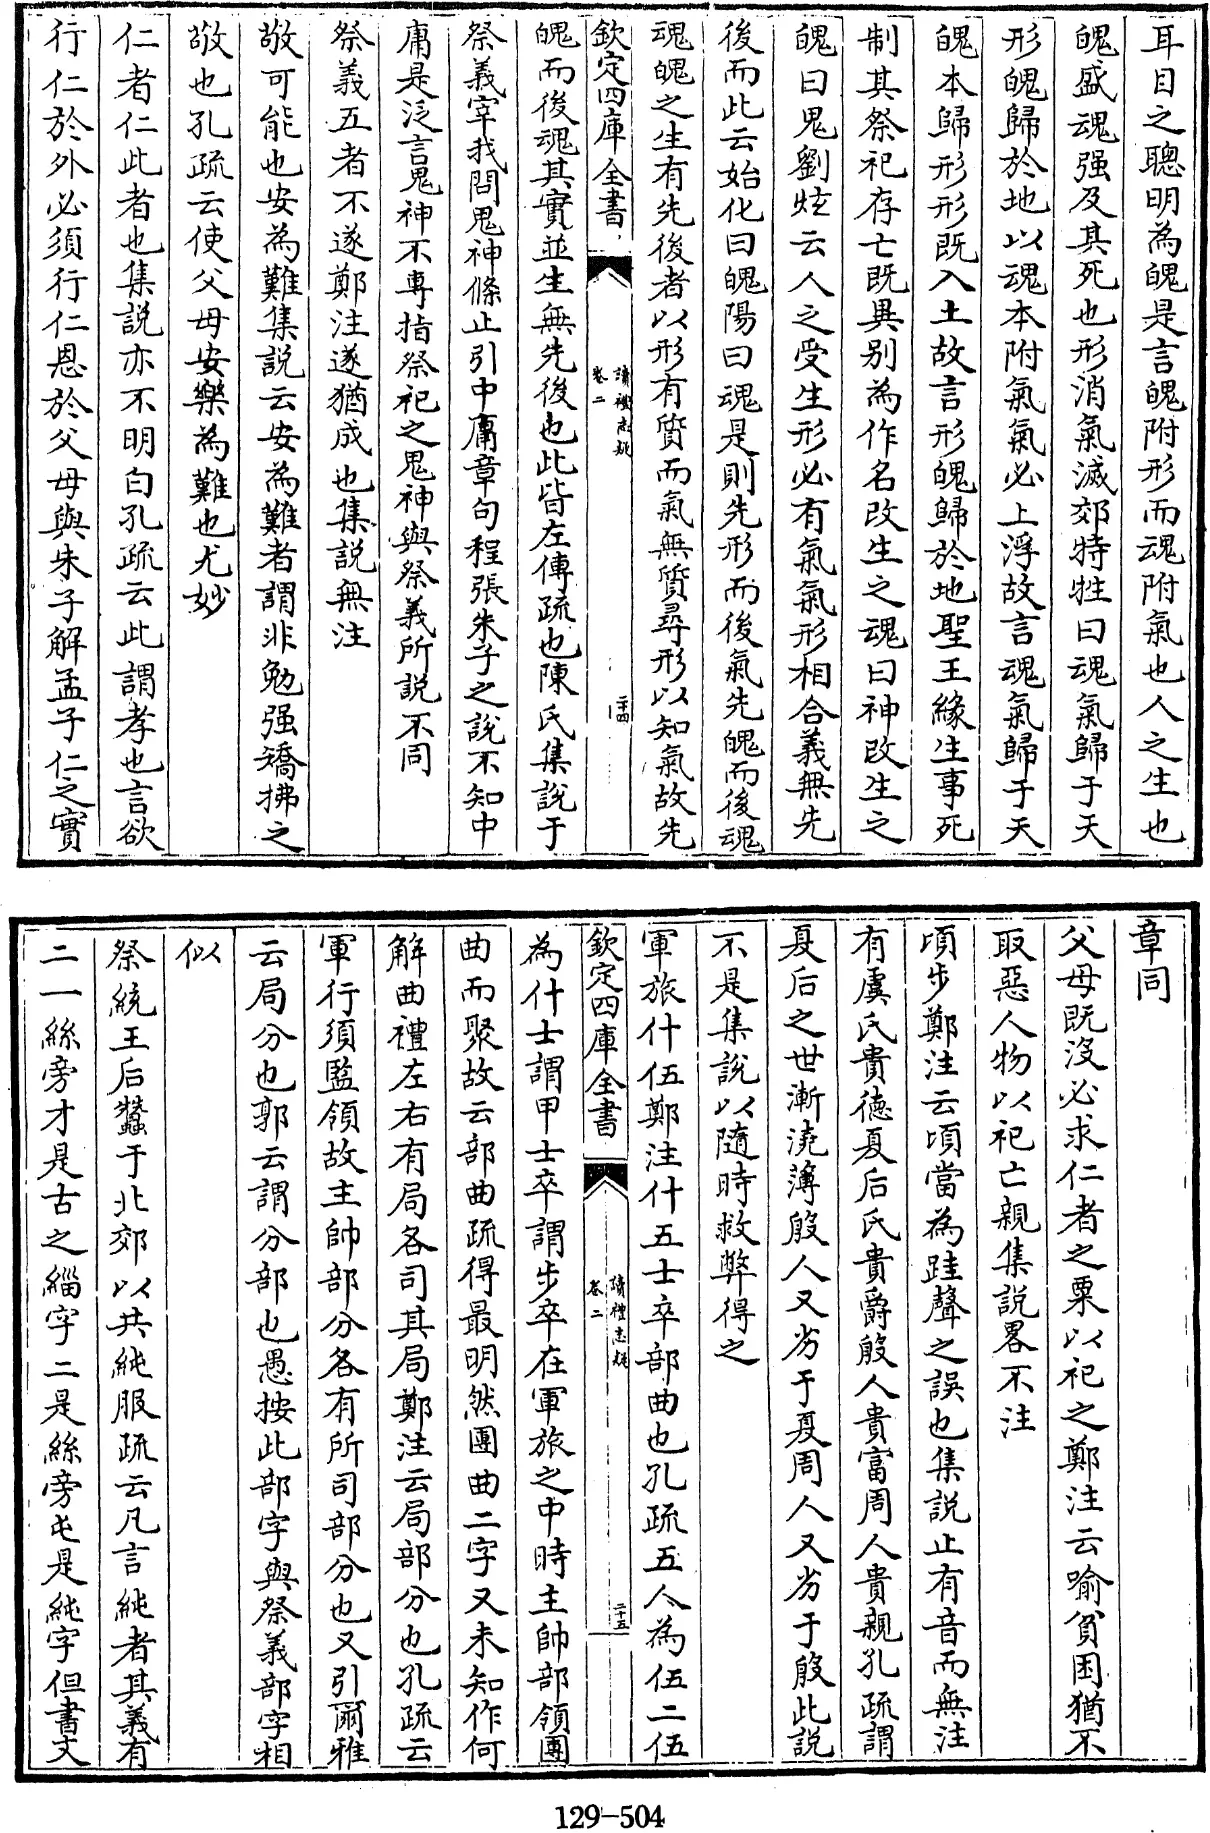 耳目之聰明為魄是言魄附形而魂附氣也人之生也
魄盛魂强及其死也形消氣滅郊特牲曰魂氣歸于天
形魄歸於地以魂本附氣氣必上浮故言魂氣歸于天
魄本歸形形既入土故言形魄歸於地聖王緣生事死
制其祭祀存亡既異别為作名改生之魂曰神改生之
魄曰鬼劉炫云人之受生形必有氣氣形相合義無先
後而此云始化曰魄陽曰魂是則先形而後氣先魄而後魂
魂魄之生有先後者以形有質而氣無質尋形以知氣故先
欽定四庫全書
讀禮志疑
卷二
二十四
魄而後魂其實並生無先後也此皆左傳疏也陳氏集說于
祭義宰我問鬼神條止引中庸章句程張朱子之說不知中
庸是泛言鬼神不專指祭祀之鬼神與祭義所説不同
祭義五者不遂鄭注遂猶成也集説無注
敬可能也安為難集説云安為難者謂非勉强矯拂之
敬也孔疏云使父母安樂為難也尤妙
仁者仁此者也集説亦不明白孔疏云此謂孝也言欲
行仁於外必須行仁恩於父母與朱子解孟子仁之實
章同
父母既沒必求仁者之粟以祀之鄭注云喻貧困猶不
取惡人物以祀亡親集説畧不注
頃步鄭注云頃當為跬聲之誤也集説止有音而無注
有虞氏貴德夏后氏貴爵殷人貴富周人貴親孔疏謂
夏后之世漸澆薄殷人又劣于夏周人又劣于殷此説
不是集説以隨時救弊得之
軍旅什伍鄭注什五士卒部曲也孔疏五人為伍二伍
欽定四庫全書
讀禮志疑
卷二
二十五
為什士謂甲士卒謂步卒在軍旅之中時主帥部領團
曲而聚故云部曲疏得最明然團曲二字又未知作何
解曲禮左右有局各司其局鄭注云局部分也孔疏云
軍行須監領故主帥部分各有所司部分也又引爾雅
云局分也郭云謂分部也愚按此部字與祭義部字相
似
祭統王后蠶于北郊以共純服疏云凡言純者其義有
二一絲旁才是古之緇字二是絲旁屯是純字但書文
129-504